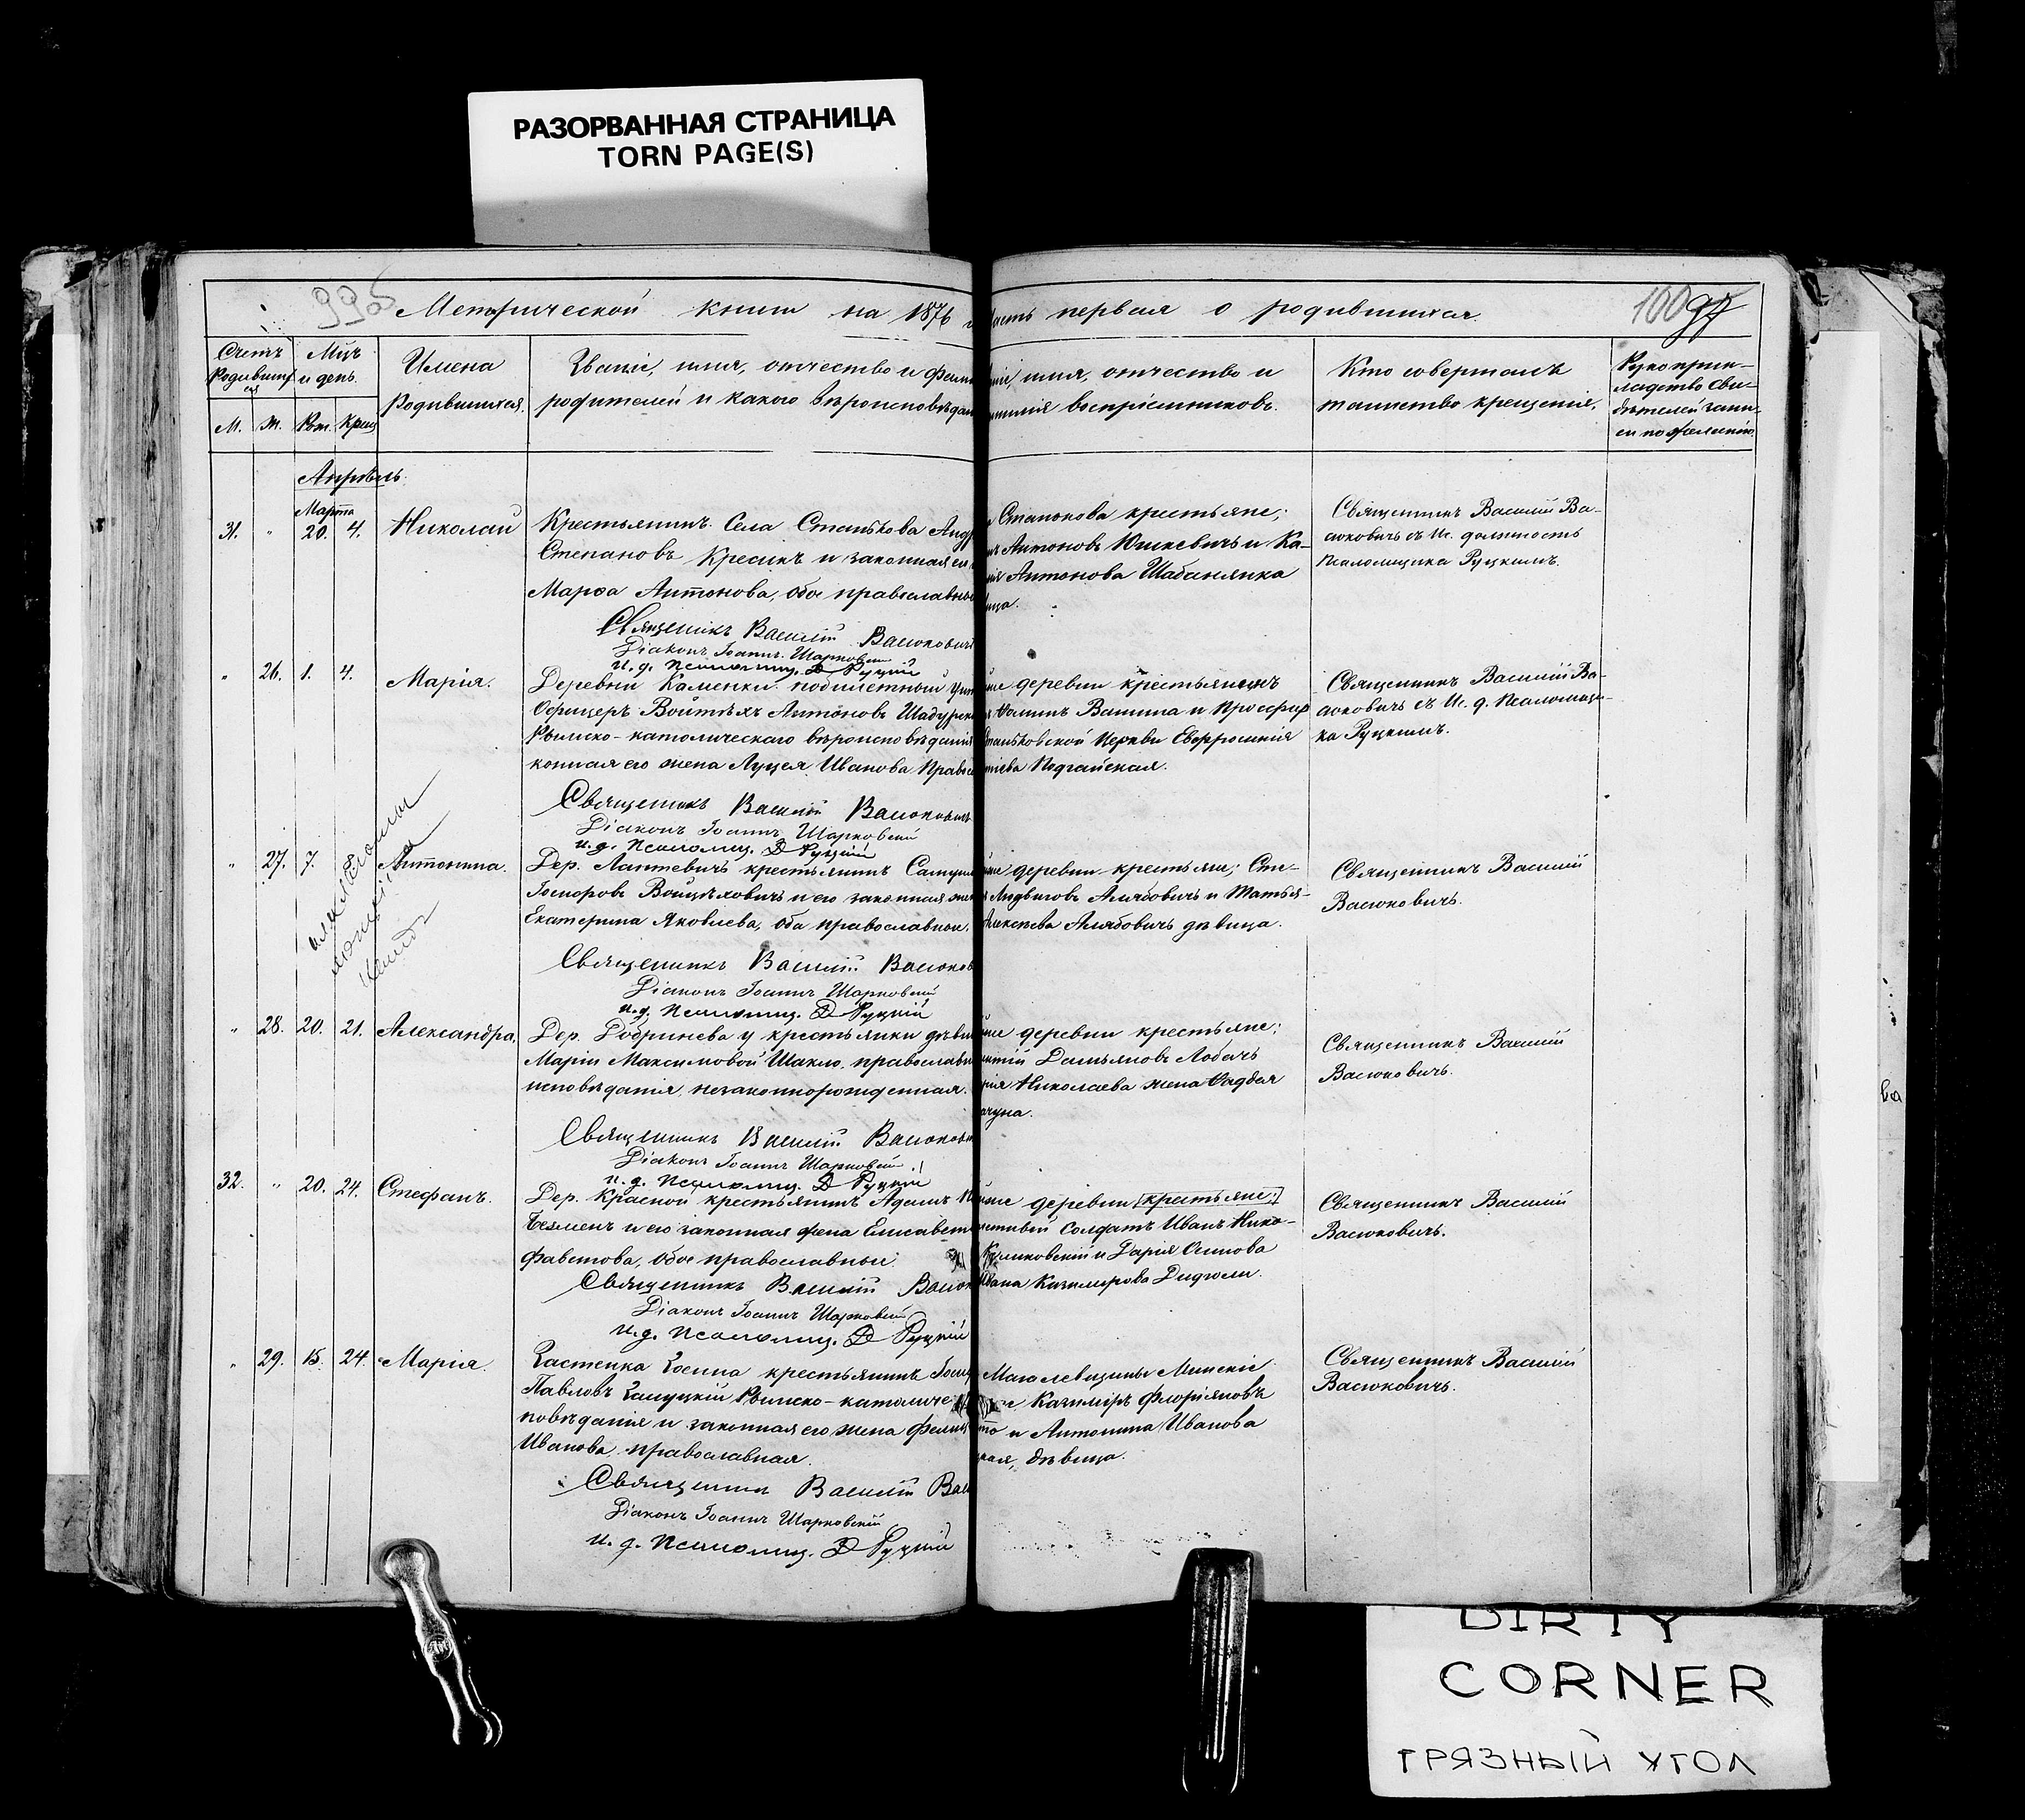 РАЗОРВАННАЯ СТРАНИЦА
TORN PAGE(S)
Метрической книги на 1876
часть первая о родившихся.
100
Счетъ
Родивших
ся
М. Ж.
Мцъ
и день.
Рож. Крещ
Имена
Родившихся.
Званіе, имя, отчество и фами
родителей и какого вѣроисповѣдан
имя, отчество и
воспріемниковъ.
Кто совершалъ
таинство крещенія.
Рукоприк-
ладство сви-
дѣтелей запи-
си по желанію
Апрѣль.
Марта
31. " 20. 4. Николай
Крестьянинъ Села Станькова Анд
Степановъ Кресикъ и законная его
Марѳа Антонова, обое православные
Священикъ Василій Васюковичъ
Діаконъ Іоаннъ Шарковскій
И. д. Псаломщ. Руцкій
Станькова крестьяне;
Антоновъ Юшкевичъ и Ка-
Антонова Шабанянка
Священникъ Василій Ва-
сюковичъ съ И. должность
Псаломщика Руцкимъ.
" 26. 1. 4. Марія.
Деревни Каменки побилетный унт
Офицеръ Войтѣхъ Антоновъ Шадурск
Римско-католическаго вѣроисповѣданія
конная его жена Луцея Иванова Право
Священикъ Василій Васюковичъ
Діаконъ Іоаннъ Шарковскій
И. д. Псаломщ. Руцкій
деревни крестьянинъ
Ѳоминъ Вашина и Просфир
Станьковской Церкви Евфросинія
Подгайская.
Священникъ Василій Ва-
сюковичъ съ И. д. Псаломщи-
ка Руцкимъ.
" 27. 7. 8. Антонина.
Дер. Лаптевичъ крестьянинъ Самуил
Войцѣховичъ и его законная же
Екатерина Яковлева, оба православные.
Священникъ Василій Васюков
Діаконъ Іоаннъ Шарковскій
И. д. Псаломщ. Руцкій
деревни крестьяне; Сте-
Людвиговъ Алябовичъ и Татья-
Алексѣева Алябовичъ дѣвица.
Священникъ Василій
Васюковичъ.
" 28. 20. 21. Александра.
Дер. Добринева у крестьянки дѣви
Маріи Максимовой Шакло, православн
исповѣданія, незаконнорожденная.
Священникъ Василій Васюкови
Діаконъ Іоаннъ Шарковскій
И. д. Псаломщ. Руцкій
деревни крестьяне;
Демьяновъ Лобачъ
Николаева жена Фаддея
Священникъ Василій
Васюковичъ.
32. " 20. 24. Стефанъ.
Дер. Красной крестьянинъ Адамъ
Безменъ и его законная жена Елисавет
Фавстова, обое православные.
Священникъ Василій Васюк
Діаконъ Іоаннъ Шарковскій
И. д. Псаломщ. Руцкій
деревни крестьяне;
Солдатъ Иванъ Нико-
Куликовскій и Дарія Осипова
Ивана Казимирова Дидюли.
Священникъ Василій
Васюковичъ.
" 29. 15. 24. Марія.
Застенка крестьянинъ
Павловъ Римско-католиче
повѣданія и законная его жена Фели
Иванова православная.
Священникъ Василій Вас
Діаконъ Іоаннъ Шарковскій
И. д. Псаломщ. Руцкій
Казиміръ Флоріяновъ
и Антонина Иванова
дѣвица.
Священникъ Василій
Васюковичъ.
ва
DIRTY
CORNER
ГРЯЗНЫЙ УГОЛ